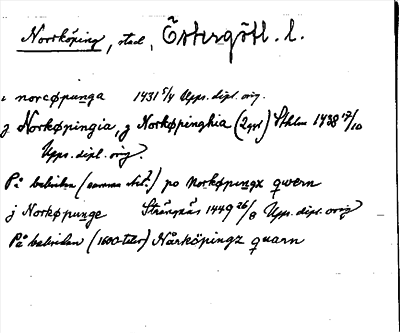 Norrköping, stad, Östergötl. l.
i norcøpunga 1431 5/4 Upps. dipl. orig.
j Norkøpingia, j Norkøpinghia (2 ggr) Sthlm 1438 17/10
Upps. dipl. orig.
På baksidan (samma) po Norkøpungx qwern
j Norkøpunge Strängnäs 1449 26/8 Upps. dipl. orig.
På baksidan (1600-talet) Nårköpingz quarn